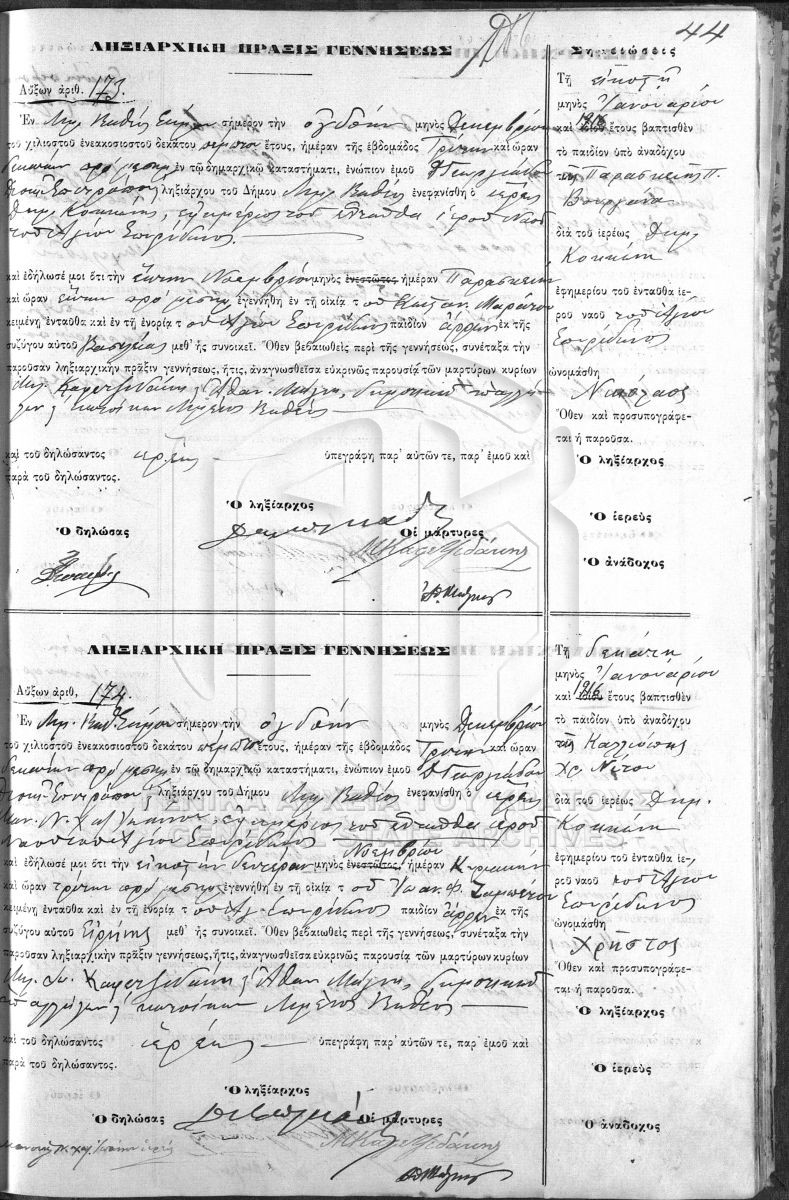 44
ΛΗΞΙΑΡΧΙΚΗ ΠΡΑΞΙΣ ΓΕΝΝΗΣΕΩΣ
Αὔξων ἀριθ. 173.
Ἐν Λιμ. Βαθέος Σάμου σήμερον τὴν ὀγδόην μηνὸς Δεκεμβρίου
τοῦ χιλιοστοῦ ἐνεακοσιοστοῦ δεκάτου πέμπτου ἔτους, ἡμέραν τῆς ἑβδομάδος Τρίτην καὶ ὥραν
δεκάτην πρὸ μεσημ. ἐν τῷ δημαρχικῷ καταστήματι, ἐνώπιον ἐμοῦ
ληξιάρχου τοῦ Δήμου Λιμ. Βαθέος ἐνεφανίσθη ὁ ἱερεὺς
Δημ. Κοκκώνης, ἐφημέριος τοῦ ἐνταῦθα ἱεροῦ Ναοῦ
τοῦ Ἁγίου Σπυρίδωνος.
καὶ ἐδήλωσέ μοι ὅτι τὴν Νοεμβρίου μηνὸς ἐνεστῶτος ἡμέραν Παρασκευὴν
καὶ ὥραν πρὸ μεσημ. ἐγεννήθη ἐν τῇ οἰκίᾳ τοῦ
κειμένῃ ἐνταῦθα καὶ ἐν τῇ ἐνορίᾳ τοῦ Ἁγίου Σπυρίδωνος παιδίον ἄρρεν ἐκ τῆς
συζύγου αὐτοῦ Βασιλείας μεθ' ἧς συνοικεῖ. Ὅθεν βεβαιωθεὶς περὶ τῆς γεννήσεως, συνέταξα τὴν
παροῦσαν ληξιαρχικὴν πρᾶξιν γεννήσεως, ἥτις, ἀναγνωσθεῖσα εὐκρινῶς παρουσίᾳ τῶν μαρτύρων κυρίων
Μιχ. Καφετζιδάκη & Ἀθαν. Μάλης, δημοτικῶν ὑπαλλή-
λων & κατοίκων Λιμένος Βαθέος
καὶ τοῦ δηλώσαντος ἱερέως ὑπεγράφη παρ' αὐτῶν τε, παρ' ἐμοῦ καὶ
παρὰ τοῦ δηλώσαντος.
Ὁ ληξίαρχος
Ὁ δηλώσας Οἱ μάρτυρες
Μ Καφετζιδάκης
Σημειώσεις
Τῇ εἰκοστῇ
μηνὸς Ἰανουαρίου
καὶ ἰδίου 1916 ἔτους βαπτισθὲν
τὸ παιδίον ὑπὸ ἀναδόχου
τῆς Παρασκευῆς Π.
διὰ τοῦ ἱερέως Δημ.
Κοκκώνη
ἐφημερίου τοῦ ἐνταῦθα ἱε-
ροῦ ναοῦ τοῦ Ἁγίου
Σπυρίδωνος
ὠνομάσθη
Νικόλαος
Ὅθεν καὶ προσυπογράφε-
ται ἡ παροῦσα.
Ὁ ληξίαρχος
Ὁ ἱερεὺς
Ὁ ἀνάδοχος
ΛΗΞΙΑΡΧΙΚΗ ΠΡΑΞΙΣ ΓΕΝΝΗΣΕΩΣ
Αὔξων ἀριθ. 174.
Ἐν Λιμ. Βαθ. Σάμου σήμερον τὴν ὀγδόην μηνὸς Δεκεμβρίου
τοῦ χιλιοστοῦ ἐνεακοσιοστοῦ δεκάτου πέμπτου ἔτους, ἡμέραν τῆς ἑβδομάδος Τρίτην καὶ ὥραν
δεκάτην πρὸ μεσημ. ἐν τῷ δημαρχικῷ καταστήματι, ἐνώπιον ἐμοῦ
ληξιάρχου τοῦ Δήμου Λιμ. Βαθέος ἐνεφανίσθη ὁ ἱερεὺς
ἐφημέριος τοῦ ἐνταῦθα ἱεροῦ
Ναοῦ τοῦ Ἁγίου Σπυρίδωνος
Νοεμβρίου
καὶ ἐδήλωσέ μοι ὅτι τὴν εἰκοστὴν δευτέραν μηνὸς ἐνεστῶτος, ἡμέραν Κυριακὴν
καὶ ὥραν τρίτην πρὸ μεσημ. ἐγεννήθη ἐν τῇ οἰκίᾳ τοῦ Ἰωαν. Φ.
κειμένῃ ἐνταῦθα καὶ ἐν τῇ ἐνορίᾳ τοῦ Ἁγ. Σπυρίδωνος παιδίον ἄρρεν ἐκ τῆς
συζύγου αὐτοῦ Εἰρήνης μεθ' ἧς συνοικεῖ. Ὅθεν βεβαιωθεὶς περὶ τῆς γεννήσεως, συνέταξα τὴν
παροῦσαν ληξιαρχικὴν πρᾶξιν γεννήσεως, ἥτις, ἀναγνωσθεῖσα εὐκρινῶς παρουσίᾳ τῶν μαρτύρων κυρίων
Καφετζιδάκη & Ἀθαν. Μάλης, δημοτικῶν
ὑπαλλήλων & κατοίκων Λιμένος Βαθέος
καὶ τοῦ δηλώσαντος ἱερέως ὑπεγράφη παρ' αὐτῶν τε, παρ' ἐμοῦ καὶ
παρὰ τοῦ δηλώσαντος.
Ὁ ληξίαρχος
Ὁ δηλώσας Οἱ μάρτυρες
Μ Καφετζιδάκης
Τῇ δεκάτῃ
μηνὸς Ἰανουαρίου
καὶ ἰδίου 1916 ἔτους βαπτισθὲν
τὸ παιδίον ὑπὸ ἀναδόχου
τῆς Καλλιόπης
διὰ τοῦ ἱερέως Δημ.
Κοκκώνη
ἐφημερίου τοῦ ἐνταῦθα ἱε-
ροῦ ναοῦ τοῦ Ἁγίου
Σπυρίδωνος
ὠνομάσθη
Χρῆστος
Ὅθεν καὶ προσυπογράφε-
ται ἡ παροῦσα.
Ὁ ληξίαρχος
Ὁ ἱερεὺς
Ὁ ἀνάδοχος
ΓΕΝΙΚΑ ΑΡΧΕΙΑ ΤΟΥ ΚΡΑΤΟΥΣ
GENERAL STATE ARCHIVES